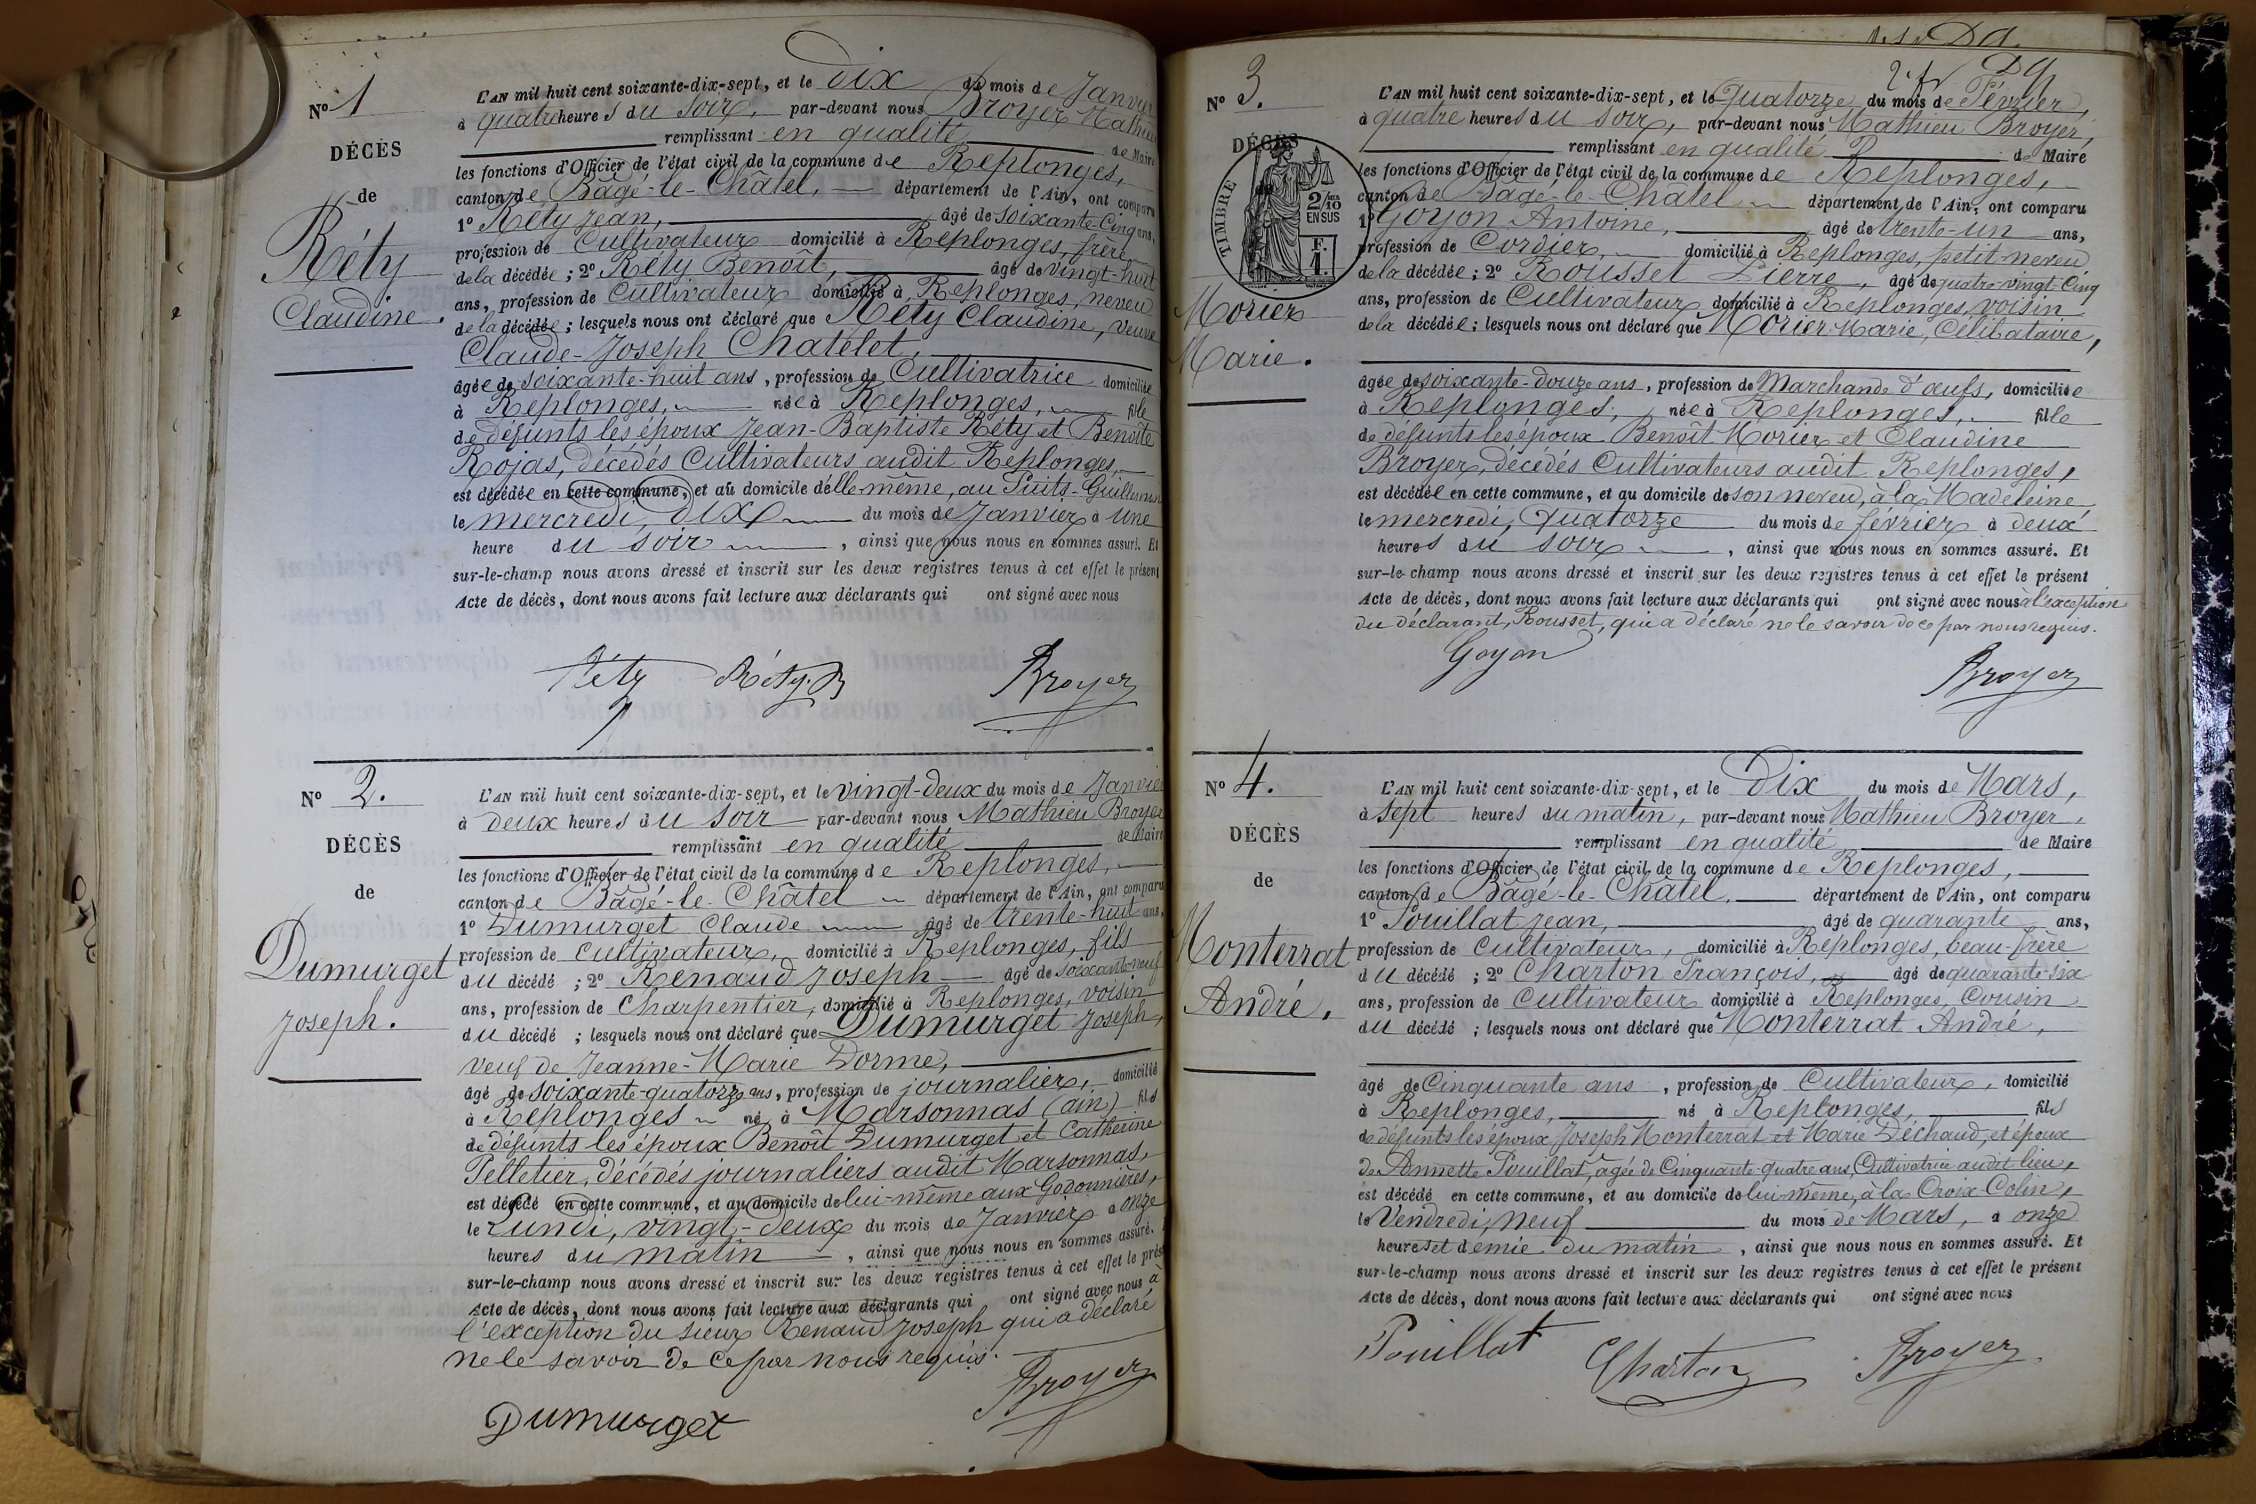 N° 1
DÉCÈS
de
Réty
Claudine.
L'AN mil huit cent soixante-dix-sept, et le Dix du mois de Janvier
à quatre heures du soir, par-devant nous Broyer Mathieu
remplissant en qualité de Maire
les fonctions d'Officier de l'état civil de la commune de Replonges,
canton de Bâgé-le-Châtel, département de l'Ain, ont comparu
1° Réty Jean, âgé de soixante-cinq ans,
profession de Cultivateur domicilié à Replonges, frère
de la décédée ; 2° Réty Benoît, âgé de vingt-huit
ans, profession de Cultivateur domicilié à Replonges, neveu
de la décédée ; lesquels nous ont déclaré que Réty Claudine, veuve
Claude-Joseph Chatelet,
âgée de soixante-huit ans, profession de Cultivatrice domiciliée
à Replonges, née à Replonges, fille
de défunts les époux Jean-Baptiste Réty et Benoîte
Rojas, décédés Cultivateurs audit Replonges,
est décédée en cette commune, et au domicile d'elle-même, au Puits-Guillemin
le mercredi, dix du mois de Janvier à une
heure du soir, ainsi que nous nous en sommes assuré. Et
sur-le-champ nous avons dressé et inscrit sur les deux registres tenus à cet effet le présent
Acte de décès, dont nous avons fait lecture aux déclarants qui ont signé avec nous
Réty Réty. B Broyer
N° 2.
DÉCÈS
de
Dumurget
Joseph.
L'AN mil huit cent soixante-dix-sept, et le vingt-deux du mois de Janvier
à deux heures du soir par-devant nous Mathieu Broyer
remplissant en qualité de Maire
les fonctions d'Officier de l'état civil de la commune de Replonges,
canton de Bâgé-le-Châtel département de l'Ain, ont comparu
1° Dumurget Claude âgé de trente-huit ans,
profession de Cultivateur, domicilié à Replonges, fils
du décédé ; 2° Renaud Joseph âgé de soixante-neuf
ans, profession de Charpentier, domicilié à Replonges, voisin
du décédé ; lesquels nous ont déclaré que Dumurget Joseph,
veuf de Jeanne-Marie Dorme,
âgé de soixante-quatorze ans, profession de journalier, domicilié
à Replonges né à Marsonnas (ain) fils
de défunts les époux Benoît Dumurget et Catherine
Pelletier, décédés journaliers audit Marsonnas,
est décédé en cette commune, et au domicile de lui-même aux Godonnières,
le Lundi, vingt-deux du mois de Janvier à onze
heures du matin, ainsi que nous nous en sommes assuré.
sur-le-champ nous avons dressé et inscrit sur les deux registres tenus à cet effet le prés
Acte de décès, dont nous avons fait lecture aux déclarants qui ont signé avec nous à
l'exception du sieur Renaud Joseph qui a déclaré
ne le savoir de ce par nous requis.
Broyer
Dumurget
N° 3.
DÉCÈS
de
TIMBRE
2/10
EN SUS
F.
1.
Morier
Marie.
L'AN mil huit cent soixante-dix-sept, et le Quatorze du mois de Février,
à quatre heures du soir, par-devant nous Mathieu Broyer,
remplissant en qualité de Maire
les fonctions d'Officier de l'état civil de la commune de Replonges,
canton de Bâgé-le-Châtel département de l'Ain, ont comparu
1° Goyon Antoine, âgé de trente-un ans,
profession de Cordier, domicilié à Replonges, petit-neveu
de la décédée ; 2° Rousset Pierre, âgé de quatre-vingt-cinq
ans, profession de Cultivateur domicilié à Replonges, voisin
de la décédée ; lesquels nous ont déclaré que Morier Marie, Célibataire,
âgée de soixante-douze ans, profession de Marchande d'œufs, domiciliée
à Replonges, née à Replonges, fille
de défunts les époux Benoît Morier et Claudine
Broyer, décédés Cultivateurs audit Replonges,
est décédée en cette commune, et au domicile de son neveu, à la Madeleine
le mercredi, quatorze du mois de février à deux
heures du soir, ainsi que nous nous en sommes assuré. Et
sur-le-champ nous avons dressé et inscrit sur les deux registres tenus à cet effet le présent
Acte de décès, dont nous avons fait lecture aux déclarants qui ont signé avec nous à l'exception
du déclarant, Rousset, qui a déclaré ne le savoir de ce par nous requis.
Goyon
Broyer
N° 4.
DÉCÈS
de
Monterrat
André,
L'AN mil huit cent soixante-dix-sept, et le Dix du mois de Mars,
à sept heures du matin, par-devant nous Mathieu Broyer,
remplissant en qualité de Maire
les fonctions d'Officier de l'état civil de la commune de Replonges,
canton de Bâgé-le-Châtel, département de l'Ain, ont comparu
1° Pouillat Jean, âgé de quarante ans,
profession de Cultivateur, domicilié à Replonges, beau-frère
du décédé ; 2° Charton François, âgé de quarante-six
ans, profession de Cultivateur domicilié à Replonges, Cousin
du décédé ; lesquels nous ont déclaré que Monterrat André,
âgé de Cinquante ans, profession de Cultivateur, domicilié
à Replonges, né à Replonges, fils
de défunts les époux Joseph Monterrat et Marie Déchaud, et époux
de Annette Pouillat, âgée de Cinquante-quatre ans, Cultivatrice audit lieu,
est décédé en cette commune, et au domicile de lui-même, à la Croix-Colin,
le Vendredi, neuf du mois de Mars, à onze
heures et demie du matin, ainsi que nous nous en sommes assuré. Et
sur-le-champ nous avons dressé et inscrit sur les deux registres tenus à cet effet le présent
Acte de décès, dont nous avons fait lecture aux déclarants qui ont signé avec nous
Pouillat Charton Broyer